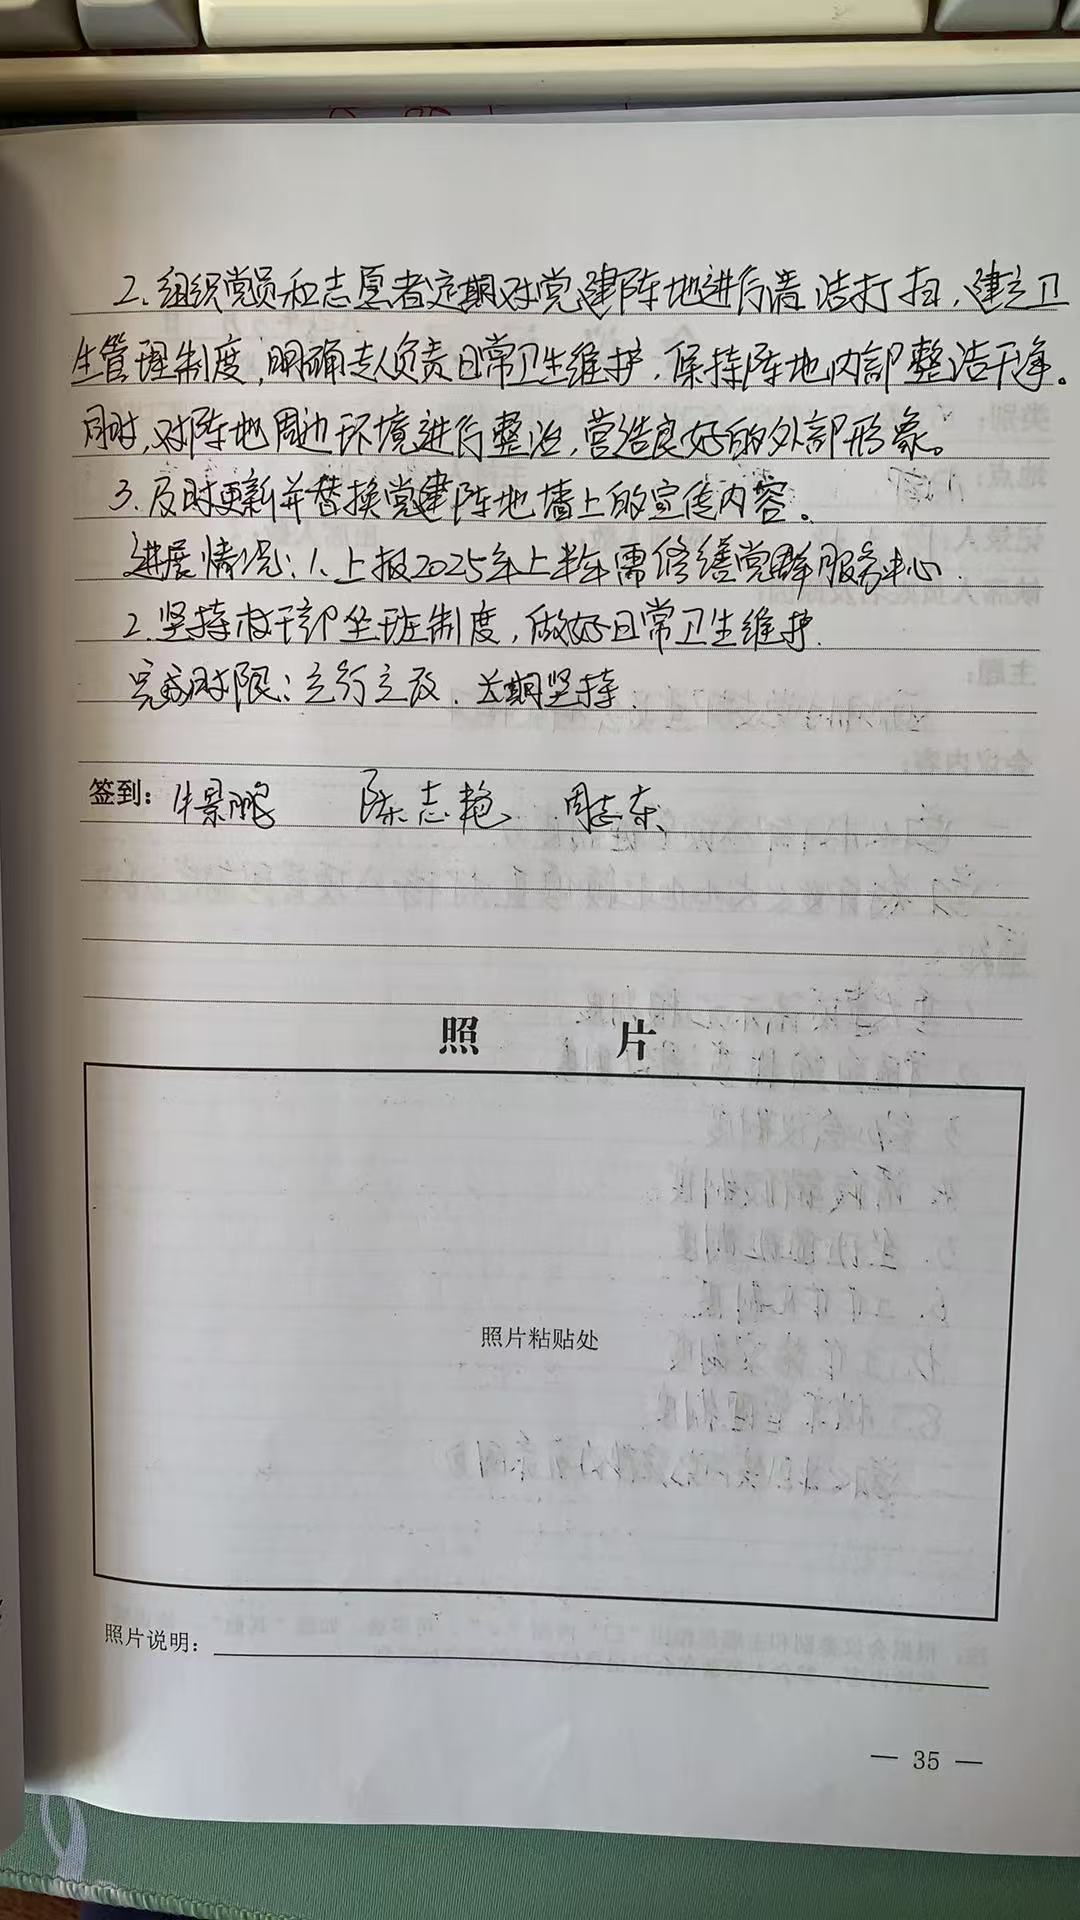 2.组织党员和志愿者定期对党建阵地进行清洁打扫,建立卫
生管理制度,明确专人负责日常卫生维护,保持阵地内部整洁干净。
同时,对阵地周边环境进行整治,营造良好的外部形象。
3.及时更新并替换党建阵地墙上的宣传内容。
进展情况:1、上报2025年上半年需修缮党群服务中心.
2.坚持村干部坐班制度,做好日常卫生维护.
完成时限:立行立改.长期坚持.
签到: 牛景鹏 陈志艳 周志东
照 片
照片粘贴处
照片说明:
— 35 —